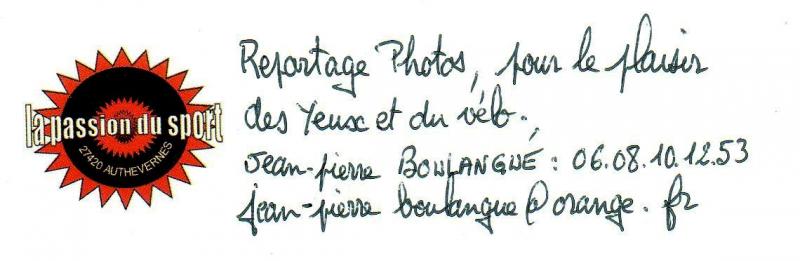 la passion du sport
27420 AUTHEVERNES
Reportage Photos, pour le plaisir
des Yeux et du vélo.,
Jean-pierre BOULANGUÉ : 06.08.10.12.53
jean-pierre boulangue@orange.fr